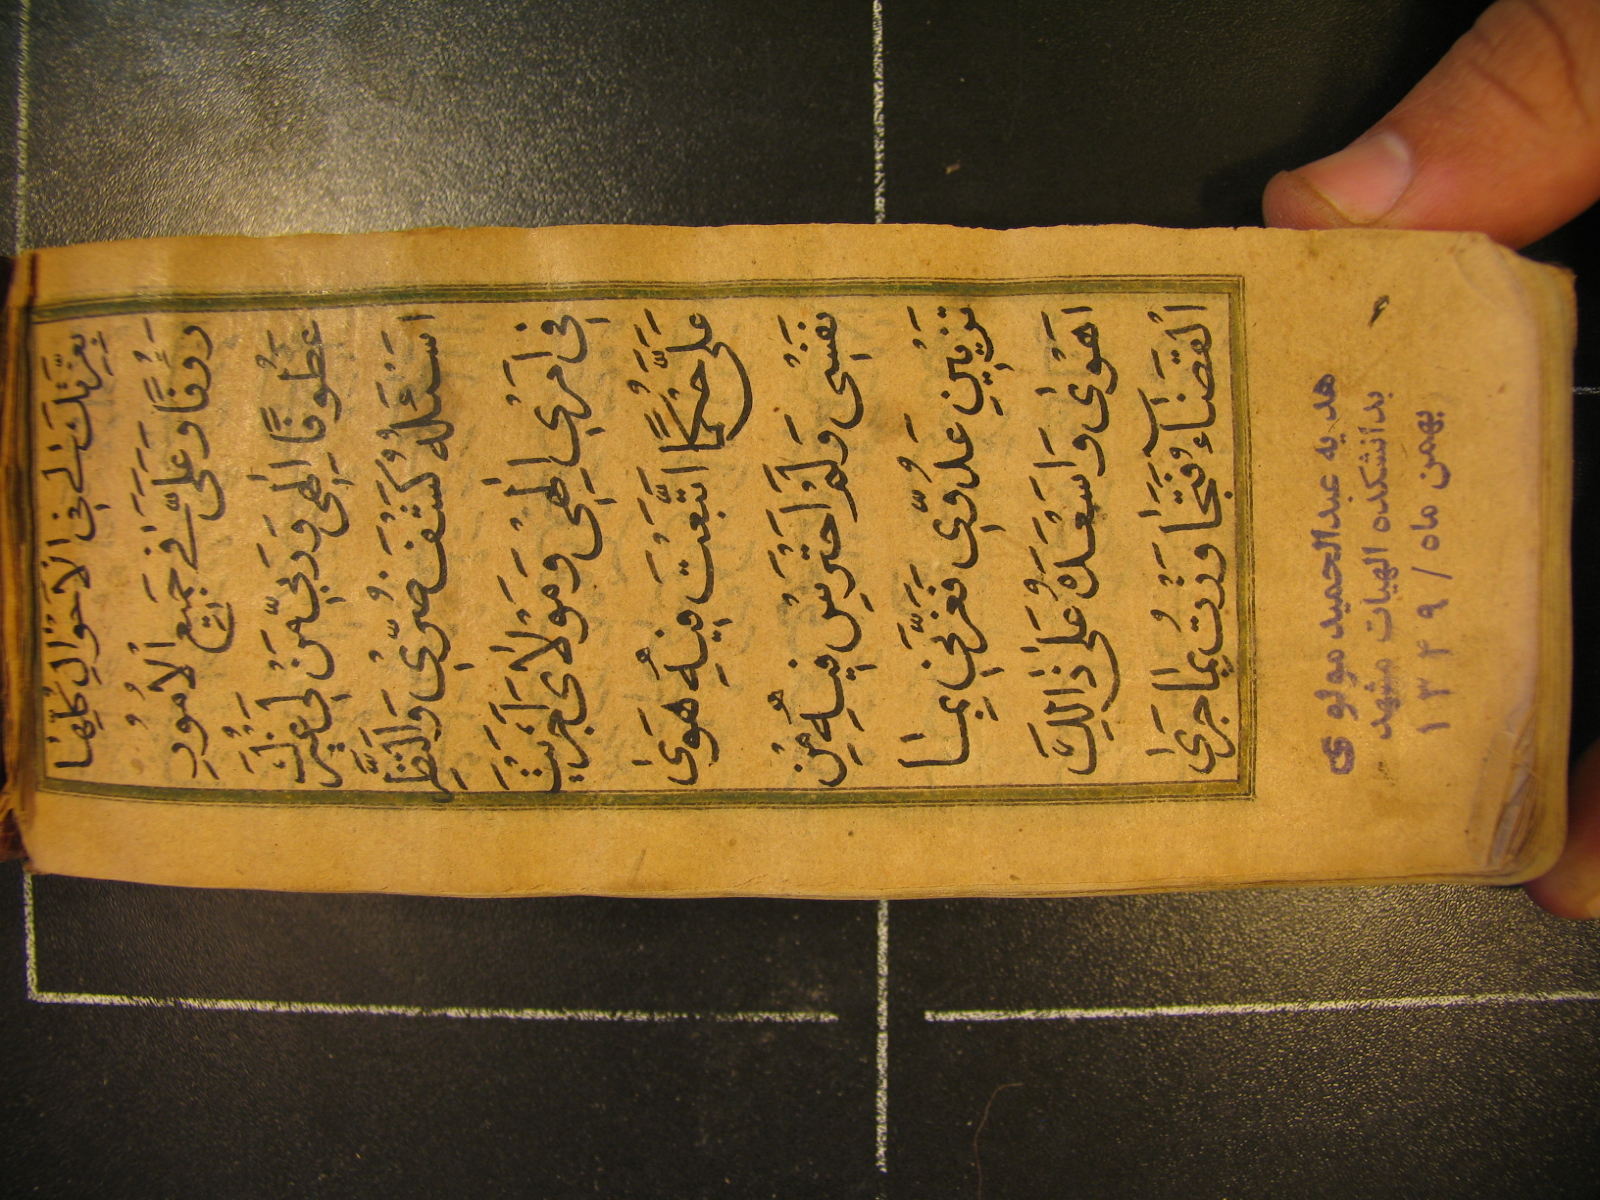 بِعِزَّتِكَ لِى فِى الْاَحْوٰالِ كُلِّهٰا
رَؤُفًا وَعَلَىَّ فِى جَمِيعِ الْاُمُورِ
عَطُوفًا اِلٰهِى وَرَبِّى مَنْ لِى غَيْرُكَ
اَسْئَلُهُ كَشْفَ ضُرِّى وَالنَّظَرَ
فِى اَمْرِى اِلٰهِى وَمَوْلاٰىَ اَجْرَيْتَ
عَلَىَّ حُكْمًا اتَّبَعْتُ فِيهِ هَوىٰ
نَفْسِى وَلَمْ اَحْتَرِسْ فِيهِ مِنْ
تَزْيِينِ عَدُوِّى فَغَرَّنِى بِمٰا
اَهْوىٰ وَاَسْعَدَهُ عَلىٰ ذٰلِكَ
الْقَضٰآءُ فَتَجٰاوَزْتُ بِمٰا جَرىٰ
هدیه عبدالحمید مولوی
بدانشکده الهیات مشهد
بهمن ماه / ۱۳۴۹